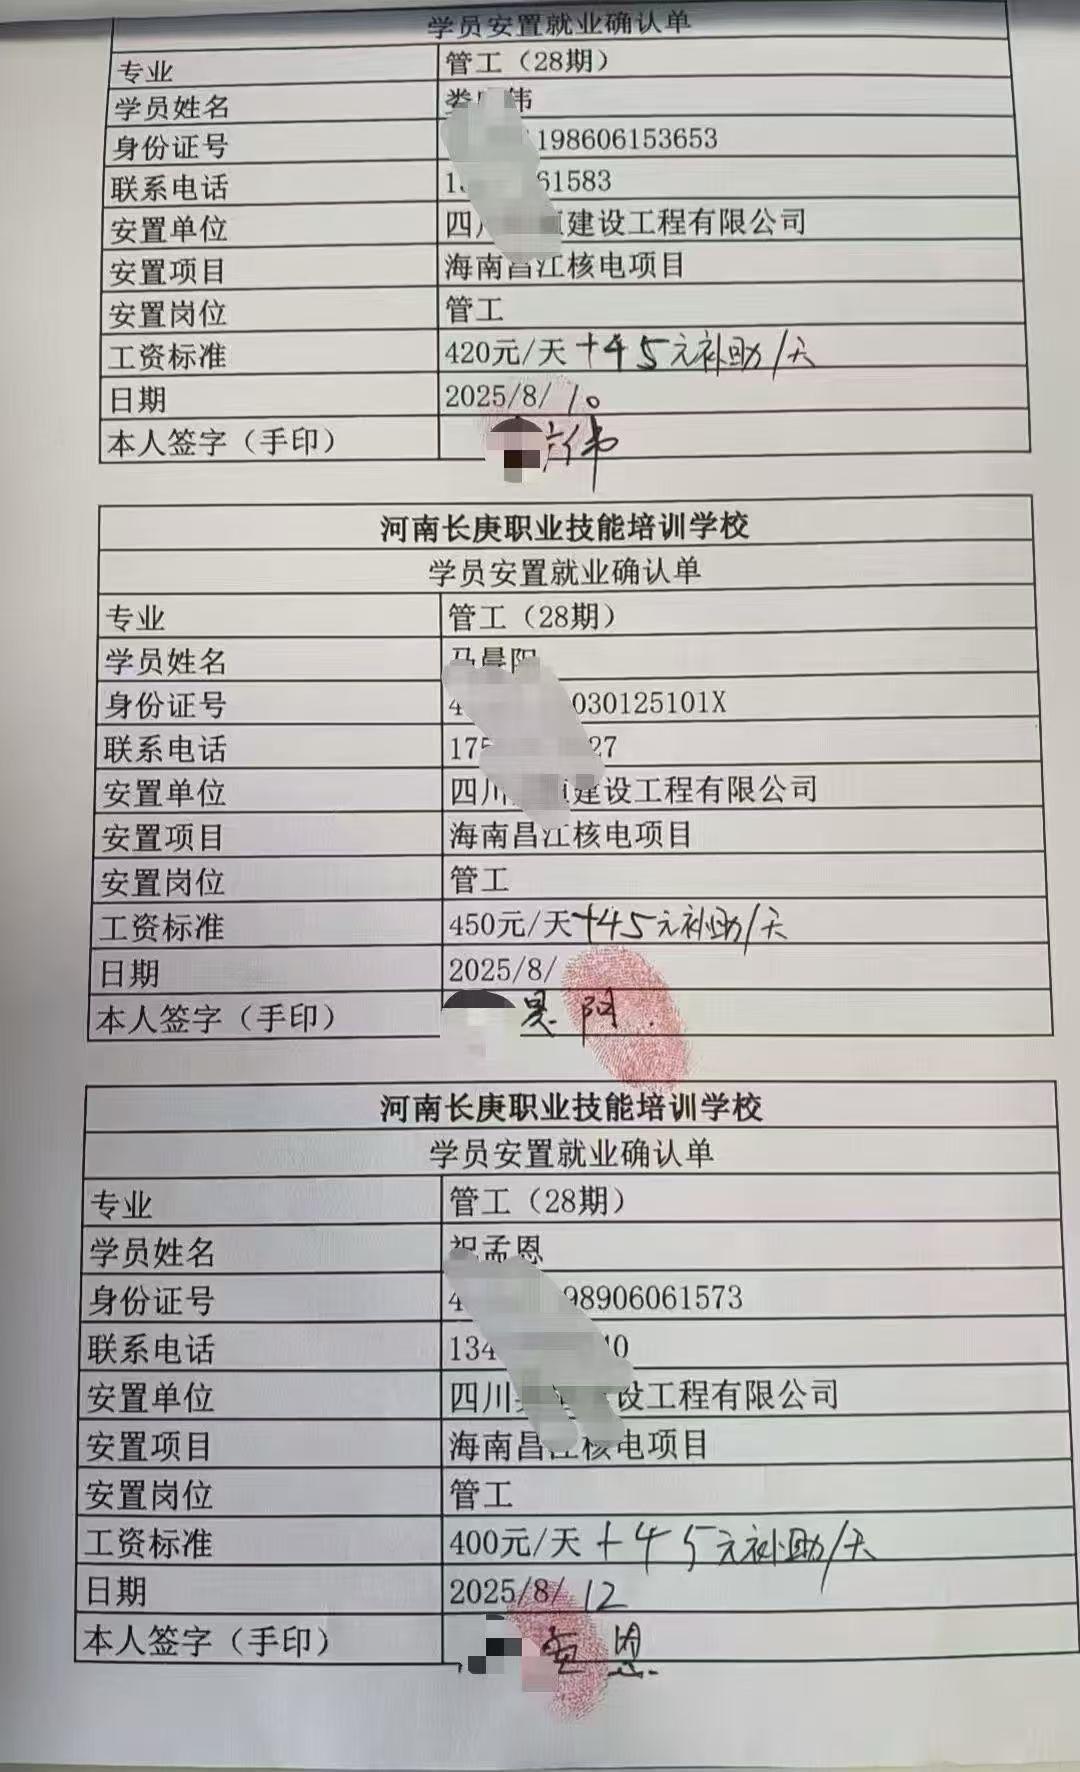 学员安置就业确认单
专业 管工（28期）
学员姓名 娄 伟
身份证号 198606153653
联系电话 1 61583
安置单位 四川 建设工程有限公司
安置项目 海南昌江核电项目
安置岗位 管工
工资标准 420元/天+45元补助/天
日期 2025/8/10
本人签字（手印） 伟
河南长庚职业技能培训学校
学员安置就业确认单
专业 管工（28期）
学员姓名 马晨阳
身份证号 4 030125101X
联系电话 175 27
安置单位 四川 建设工程有限公司
安置项目 海南昌江核电项目
安置岗位 管工
工资标准 450元/天+45元补助/天
日期 2025/8/
本人签字（手印） 晨阳
河南长庚职业技能培训学校
学员安置就业确认单
专业 管工（28期）
学员姓名 祝孟恩
身份证号 4 98906061573
联系电话 134 40
安置单位 四川 设工程有限公司
安置项目 海南昌江核电项目
安置岗位 管工
工资标准 400元/天+45元补助/天
日期 2025/8/12
本人签字（手印） 孟恩